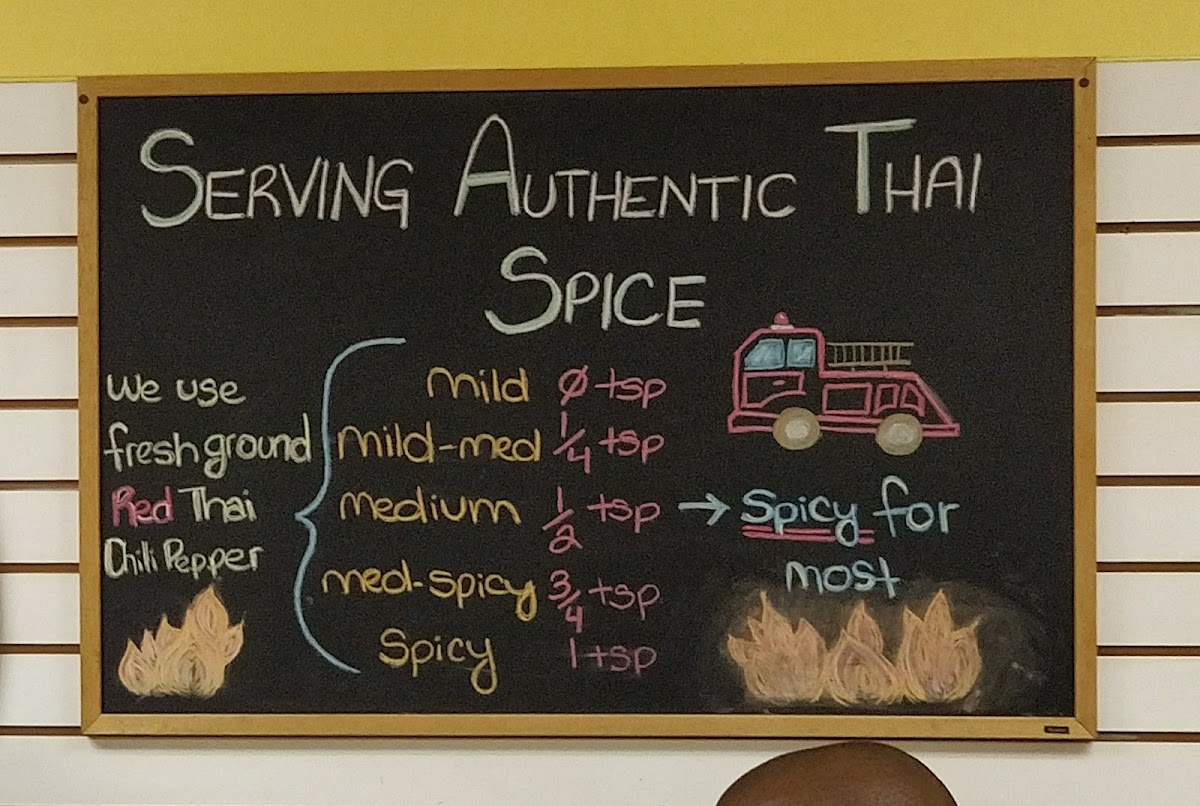 SERVING AUTHENTIC THAI
SPICE
We use
fresh ground
Red Thai
Chili Pepper
mild Ø tsp
mild-med 1/4 tsp
medium 1/2 tsp → Spicy for
most
med-spicy 3/4 tsp
Spicy 1 tsp